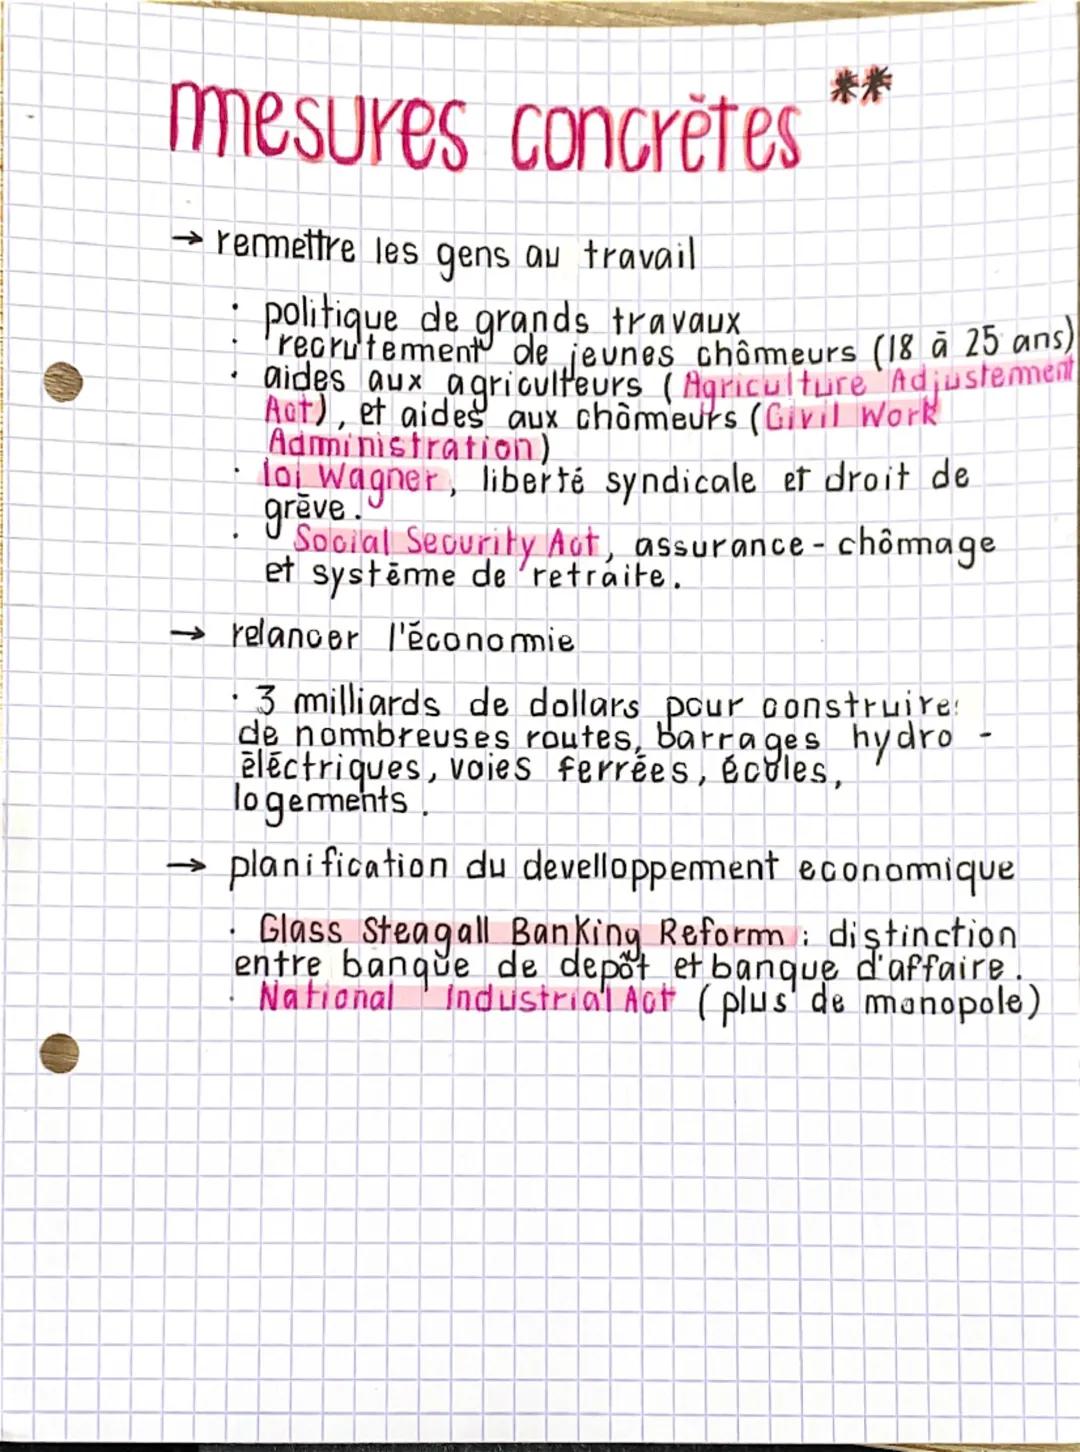 mesures concrètes **
→ remettre les gens au travail
· politique de grands travaux
· recrutement de jeunes chômeurs (18 à 25 ans)
· aides aux agriculteurs (Agriculture Adjustement
Act), et aides aux chômeurs (Civil Work
Administration)
· loi Wagner, liberté syndicale et droit de
grève.
· Social Security Act, assurance-chômage
et système de retraite.
→ relancer l'économie
· 3 milliards de dollars pour construire:
de nombreuses routes, barrages hydro-
électriques, voies ferrées, écoles,
logements.
→ planification du develloppement economique
· Glass Steagall Banking Reform : distinction
entre banque de depôt et banque d'affaire.
· National Industrial Act (plus de monopole)